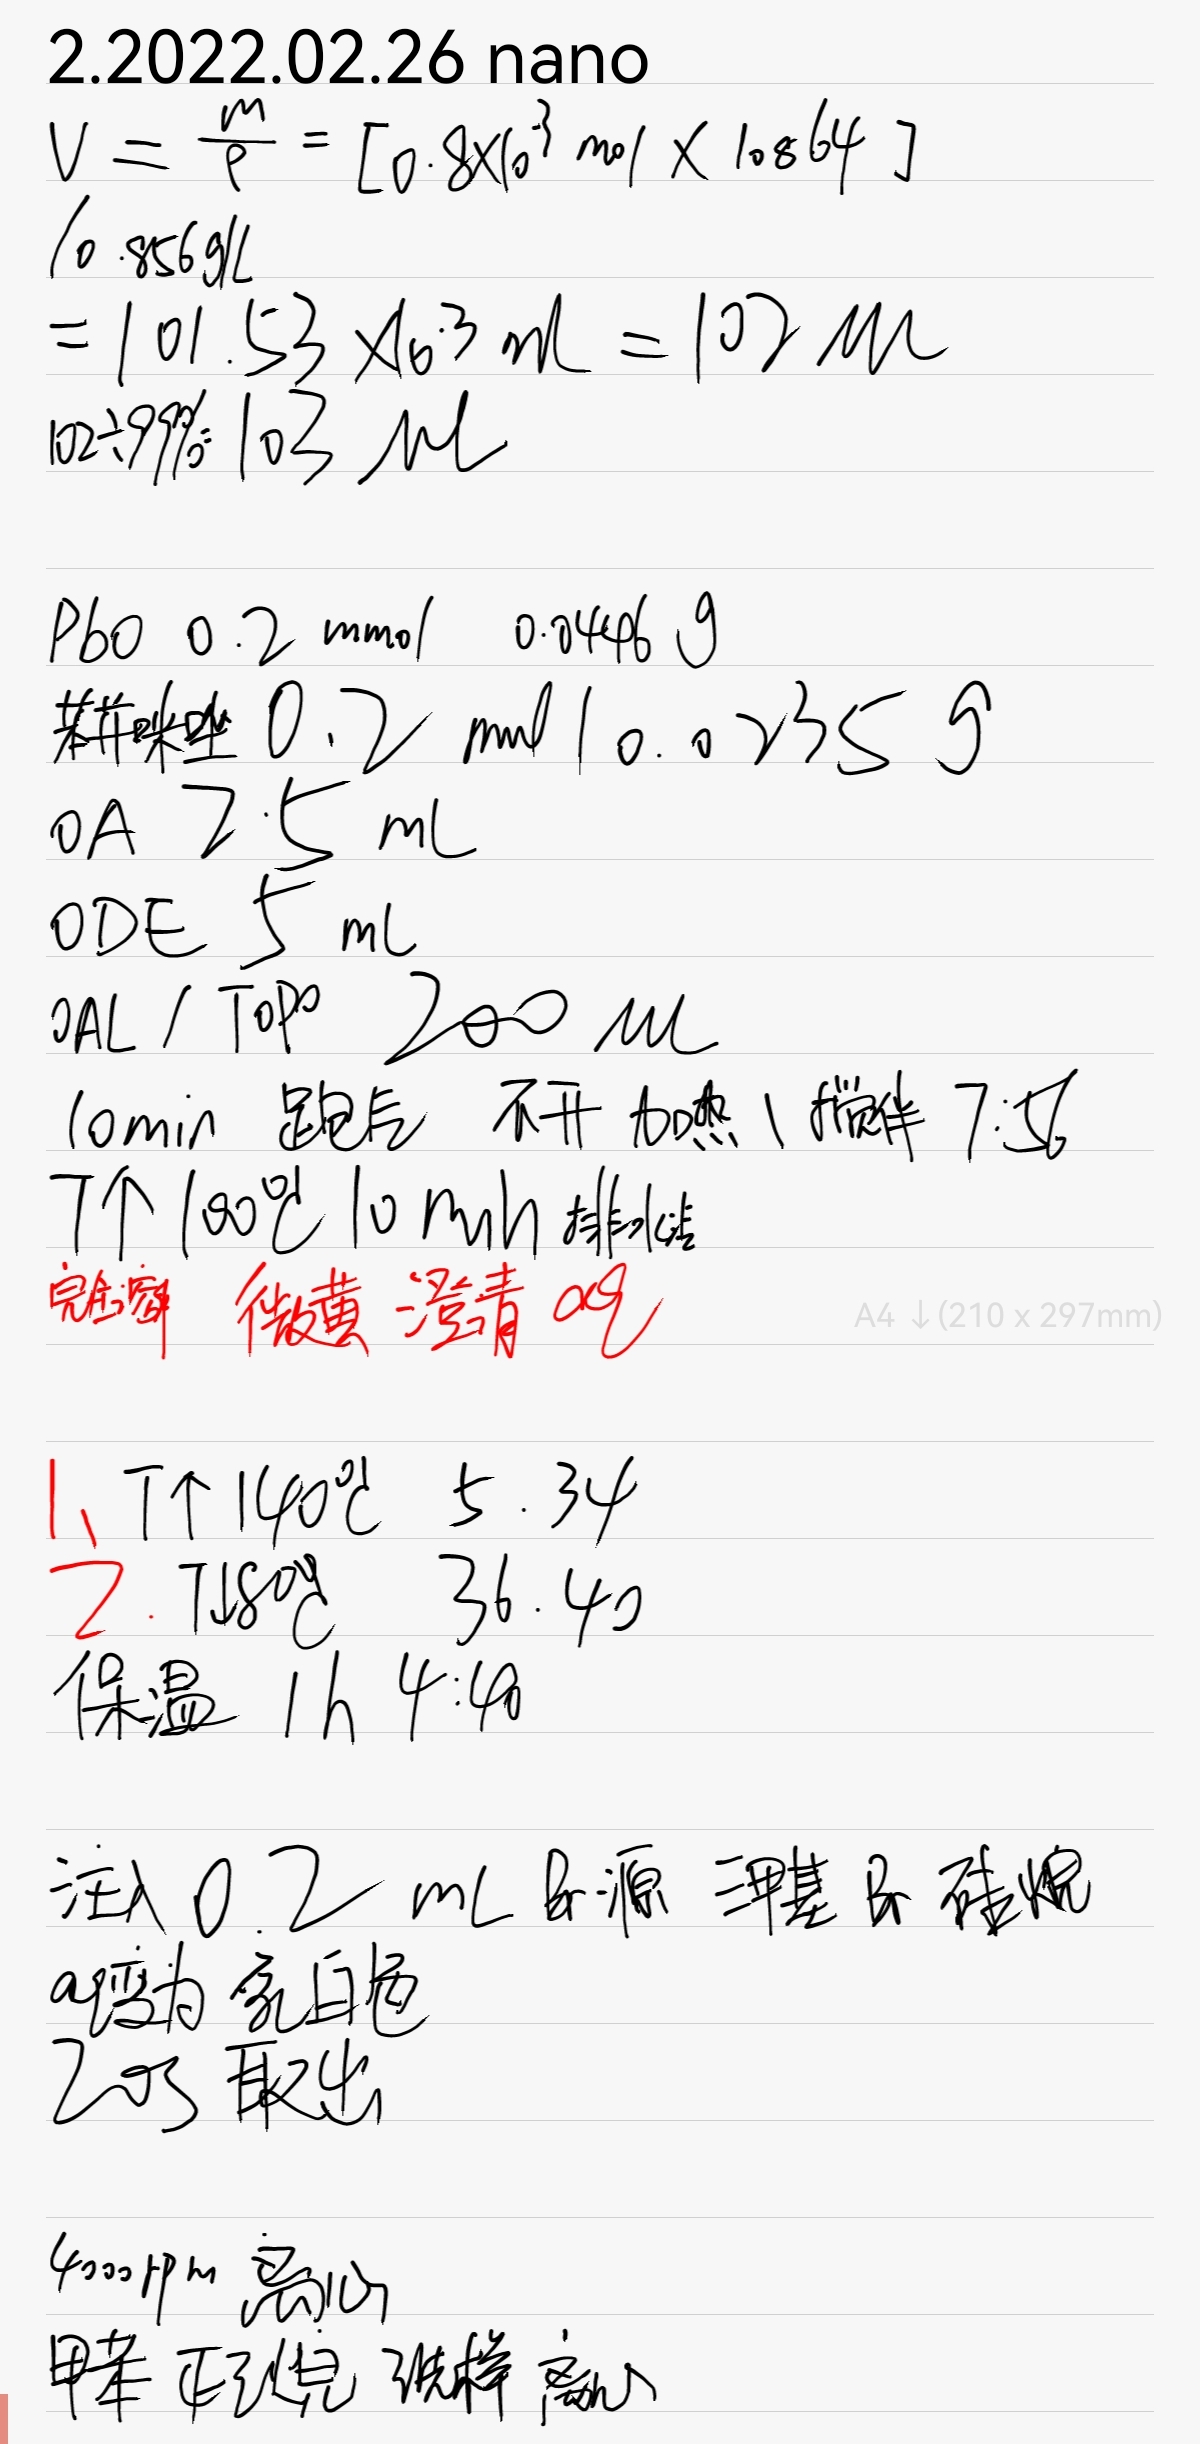 2.2022.02.26 nano
V = m/ρ = [0.8×10⁻³ mol × 108.64]
/0.856g/L
= 101.53 ×10⁻³ mL = 102 μL
102÷99%= 103 μL
PbO 0.2 mmol 0.0446 g
苯并咪唑 0.2 mmol / 0.0235 g
OA 2.5 mL
ODE 5 mL
OAL / TOPO 200 μL
10min 跑气 不开 加热 \ 搅拌 7:56
T↑ 100℃ 10 min 排水法
完全溶解 微黄 澄清 aq
A4 ↓(210 x 297mm)
1、T↑ 140℃ 5.34
2. T↓80℃ 36.40
保温 1h 4:40
注入 0.2 mL Br源 三甲基 Br 硅烷
aq变为 乳白色
20s 取出
4000rpm 离心
甲苯 正己烷 洗样 离心